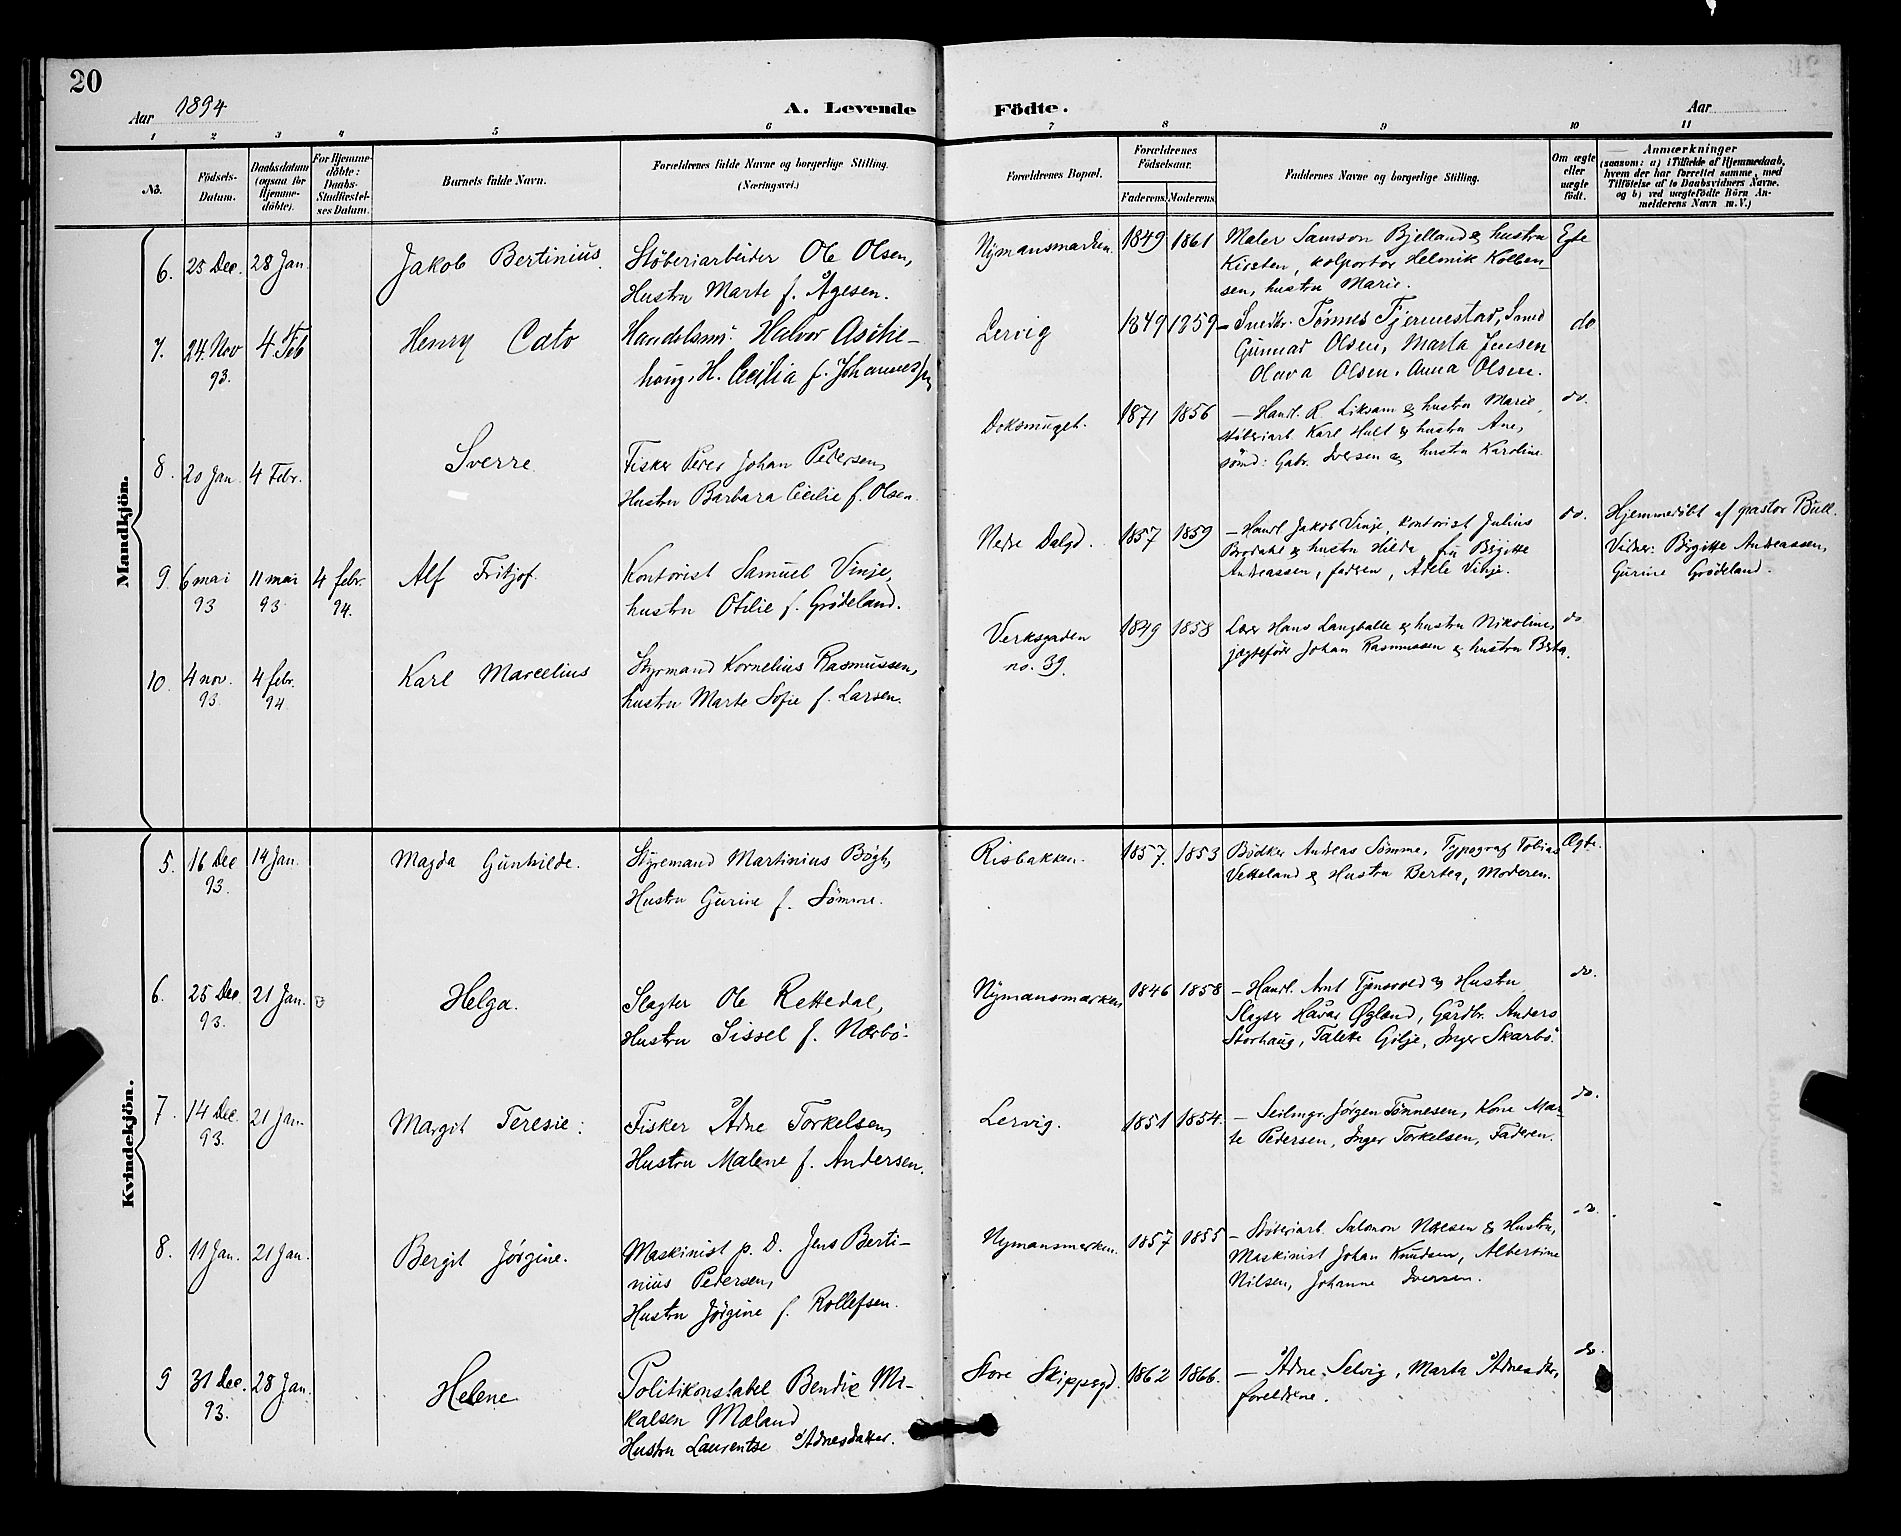 20
Aar 1894
A. Levende Födte.
Aar
1 2 3 4 5 6 7 8 9 10 11
No.
Födsels-Datum.
Daabsdatum (ogsaa for Hjemme-döbte).
For Hjemme-döbte: Daabs-Stadfæstel-ses Datum.
Barnets fulde Navn.
Forældrenes fulde Navne og borgerlige Stilling. (Næringsvei.)
Forældrenes Bopæl.
Forældrenes Födselsaar.
Faderens Moderens
Faddernes Navne og borgerlige Stilling.
Om ægte eller uægte födt.
Anmærkninger
(saasom: a) i Tilfælde af Hjemmedaab, hvem der har forrettet samme, med Tilföielse af to Daabsvidners Navne, og b) ved uægtefödte Börn An-melderens Navn m. V.)
Mandkjön.
6. 25 Dec. 28 Jan. Jakob Bertinius.
Støberiarbeider Ole Olsen,
Hustru Marte f. Ågesen.
Nymansmarken. 1849 1861
Maler Samson Bjelland & hustru
Kirsten, kolportør Helmik Kolben-
sen, hustru Marie.
Egte
7. 24 Nov 93. 4 Feb Henry Cato
Handelsm. Halvor Aske-
haug, H. Cecilia f. Johannes
Lervig 1849 1859
– Snedkr. Tønnes Tjermestad, Smed
Gunnar Olsen, Marta Jensen
Olava Olsen, Anna Olsen.
do
8. 20 Jan. 4 Febr. Sverre
Fisker Peter Johan Pedersen,
Hustru Barbara Cecilie f. Olsen.
Doksmuget. 1871 1856
– Handl. R. Liksam & hustru Marie,
støberiarb. Karl Hult & hustru Ane,
sömd: Gabr. Iversen & hustru Karoline.
do.
9. 6 mai 93 11 mai 93 4 febr. 94. Alf Fritjof.
Kontorist Samuel Vinje,
hustru Otilie f. Grødeland.
Nedre Dalgd. 1857 1859
– Handl Jakob Vinje, kontorist Julius
Brodahl & hustru Hilda, fru Birgitte
Andreassen, faderen, Adele Vinje.
do.
Hjemmedöbt af pastor Bull.
Vidner: Birgitte Andreassen,
Gurine Grödeland.
10. 4 nov. 93 4 febr. 94 Karl Marcelius
Styrmand Kornelius Rasmussen,
hustru Marte Sofie f. Larsen.
Verksgaden
no. 39. 1849 1858
Lærer Hans Langballe & hustru Nikoline,
jægtefører Johan Rasmussen & hustru Berta.
do
Kvindekjön.
5. 16 Dec 93. 14 Jan. Magda Gunhilde.
Styremand Martinius Bögh,
Hustru Gurine f. Sömme.
Risbakken. 1857. 1853
Bödker Andreas Sömme, Typograf Tobias
Vetteland & Hustru Bertea, Moderen.
Ægte.
6. 25 Dec. 93. 21 Jan. Helga.
Slagter Ole Rettedal,
Hustru Sissel f. Nærbö.
Nymansmarken 1846 1858
– Handl. Arnt Tjensvold & Hustru
Slagter Håvar Øgland, Gårdbr. Anders
Storhaug, Talette Gilje, Inger Skarbö.
do.
7. 14 Dec 93. 21 Jan. Margit Teresie.
Fisker Ådne Torkelsen,
Hustru Malene f. Andersen.
Lervig. 1851 1854.
– Seilmgr. Jörgen Tönnesen, Kone Mar-
te Pedersen, Inger Torkelsen, Faderen.
do.
8. 11 Jan. 21 Jan. Bergit Jörgine.
Maskinist p. D. Jens Berti-
nius Pedersen,
Hustru Jörgine f. Rollefsen.
Nymansmarken. 1857 1855
– Støberiarb. Salomon Næsen & Hustru,
Maskinist Johan Knudsen, Albertine
Nilsen, Johanne Iversen.
do.
9 31 Dec. 93. 28 Jan. Helene
Politikonstabel Bendix Mi-
kalsen Mæland
Hustru Laurentse Ådnesdatter.
Store Skippegd. 1862 1866.
– Ådne Selvig, Marta Ådnesdtr,
foreldrene.
do.